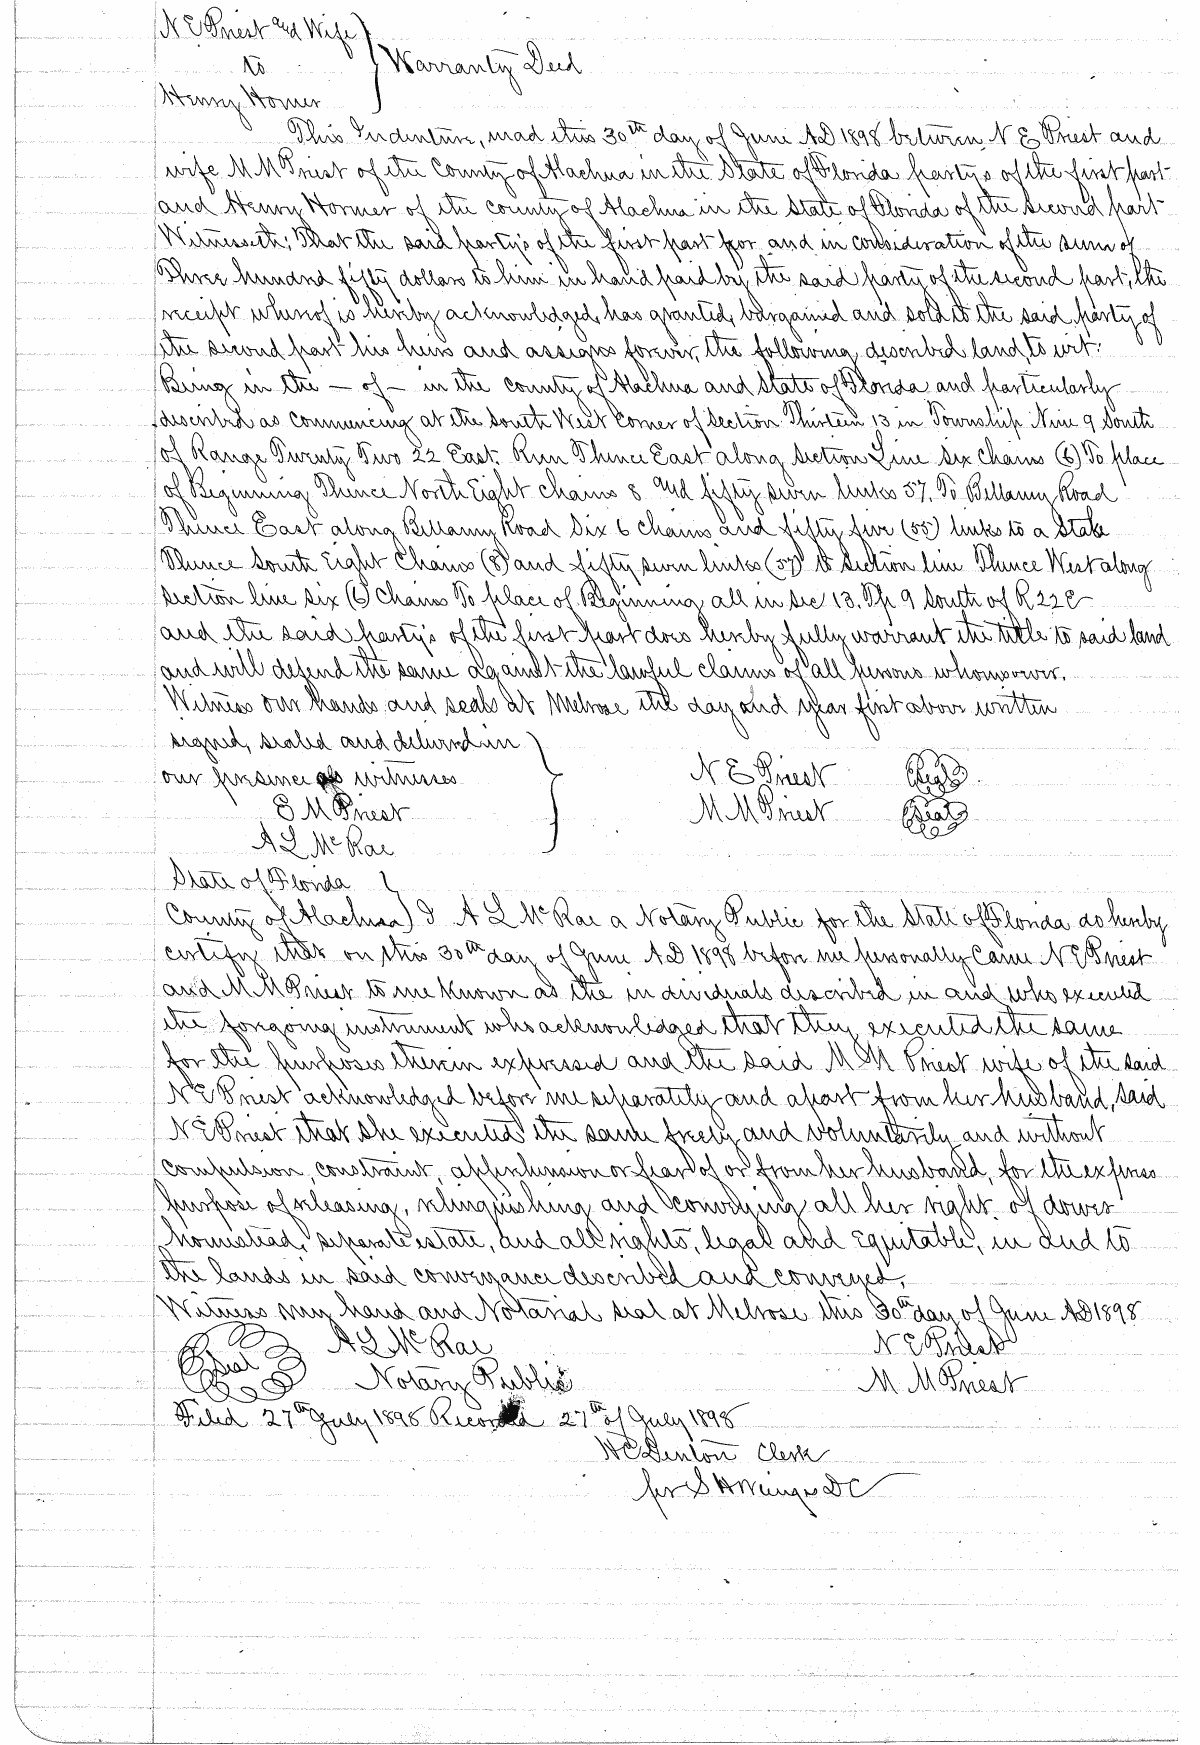 N E Priest and Wife
to
Warranty Deed
Henry Horner
This Indenture, mad this 30th day of June A.D 1898 between N E Priest and
wife M M Priest of the County of Alachua in the State of Florida party's of the first part
and Henry Horner of the county of Alachua in the State of Florida of the second part
Witnesseth; That the said party's of the first part for and in consideration of the sum of
Three hundred fifty dollars to him in hand paid by the said party of the second part, the
receipt whereof is hereby acknowledged, has granted, bargained and sold to the said party of
the second part his heirs and assigns forever, the following described land, to wit:
Being in the — of — in the county of Alachua and State of Florida and particularly
described as commencing at the South West Corner of Section Thirteen 13 in Township Nine 9 South
of Range Twenty Two 22 East. Run Thence East along Section Line six chains (6) To place
of Beginning Thence North Eight chains 8 and fifty seven links 57. To Bellamy Road
Thence East along Bellamy Road Six 6 chains and fifty five (55) links to a Stake
Thence South Eight Chains (8) and fifty seven links (57) to Section line Thence West along
Section line six (6) chains To place of Beginning all in sec 13. Tp 9 South of R 22 E
and the said party's of the first part does hereby fully warrant the title to said land
and will defend the same against the lawful claims of all persons whomsoever.
Witness our hands and seals at Melrose the day and year first above written
signed, sealed and delivered in
our presence as witnesses
N E Priest Seal
E M Priest
M M Priest Seal
A L McRae
State of Florida
County of Alachua) I A L McRae a Notary Public for the State of Florida do hereby
certify that on this 30th day of June A.D 1898 before me personally came N E Priest
and M M Priest to me known as the individuals described in and who executed
the forgoing instrument who acknowledged that they executed the same
for the purposes therein expressed and the said M M Priest wife of the said
N E Priest acknowledged before me separately and apart from her husband, said
N E Priest that she executed the same freely and voluntarily and without
compulsion, constraint, apprehension or fear of or from her husband, for the express
purpose of releasing, relinquishing and conveying all her right of dower
homestead, separate estate, and all rights, legal and Equitable, in and to
the lands in said conveyance described and conveyed.
Witness my hand and Notarial seal at Melrose this 30th day of June A.D 1898
Seal A L McRae N E Priest
Notary Public M M Priest
Filed 27th July 1898 Recorded 27th of July 1898
H C Denton Clerk
per S H Wienges DC